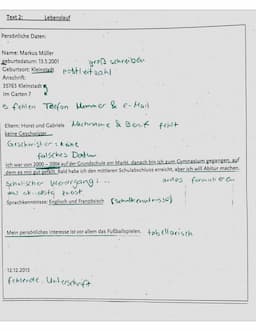 Text 2: Lebenslauf
Persönliche Daten:
Name: Markus Müller
geburtsdatum: 13.5.2001 groß schreiben
Geburtsort: Kleinstadt Postleitzahl
Anschrift:
35765 Kleinstadt
Im Garten 7
es fehlen Telefon Nummer & E-Mail
Eltern: Horst und Gabriele Nachname & Beruf fehlt
keine Geschwister
Geschwister
falsches Datum
ich war von 2000 – 2004 auf der Grundschule am Markt. danach bin ich zum Gymnasium gegangen, auf
dem es mir gut gefällt. Bald habe ich den mittleren Schulabschluss erreicht, aber ich will Abitur machen.
schulischer
anders formulieren
Sprachkenntnisse: Englisch und Französisch (Schulkenntnisse)
Mein persönliches Interesse ist vor allem das Fußballspielen. tabellarisch
12.12.2015
fehlende Unterschrift